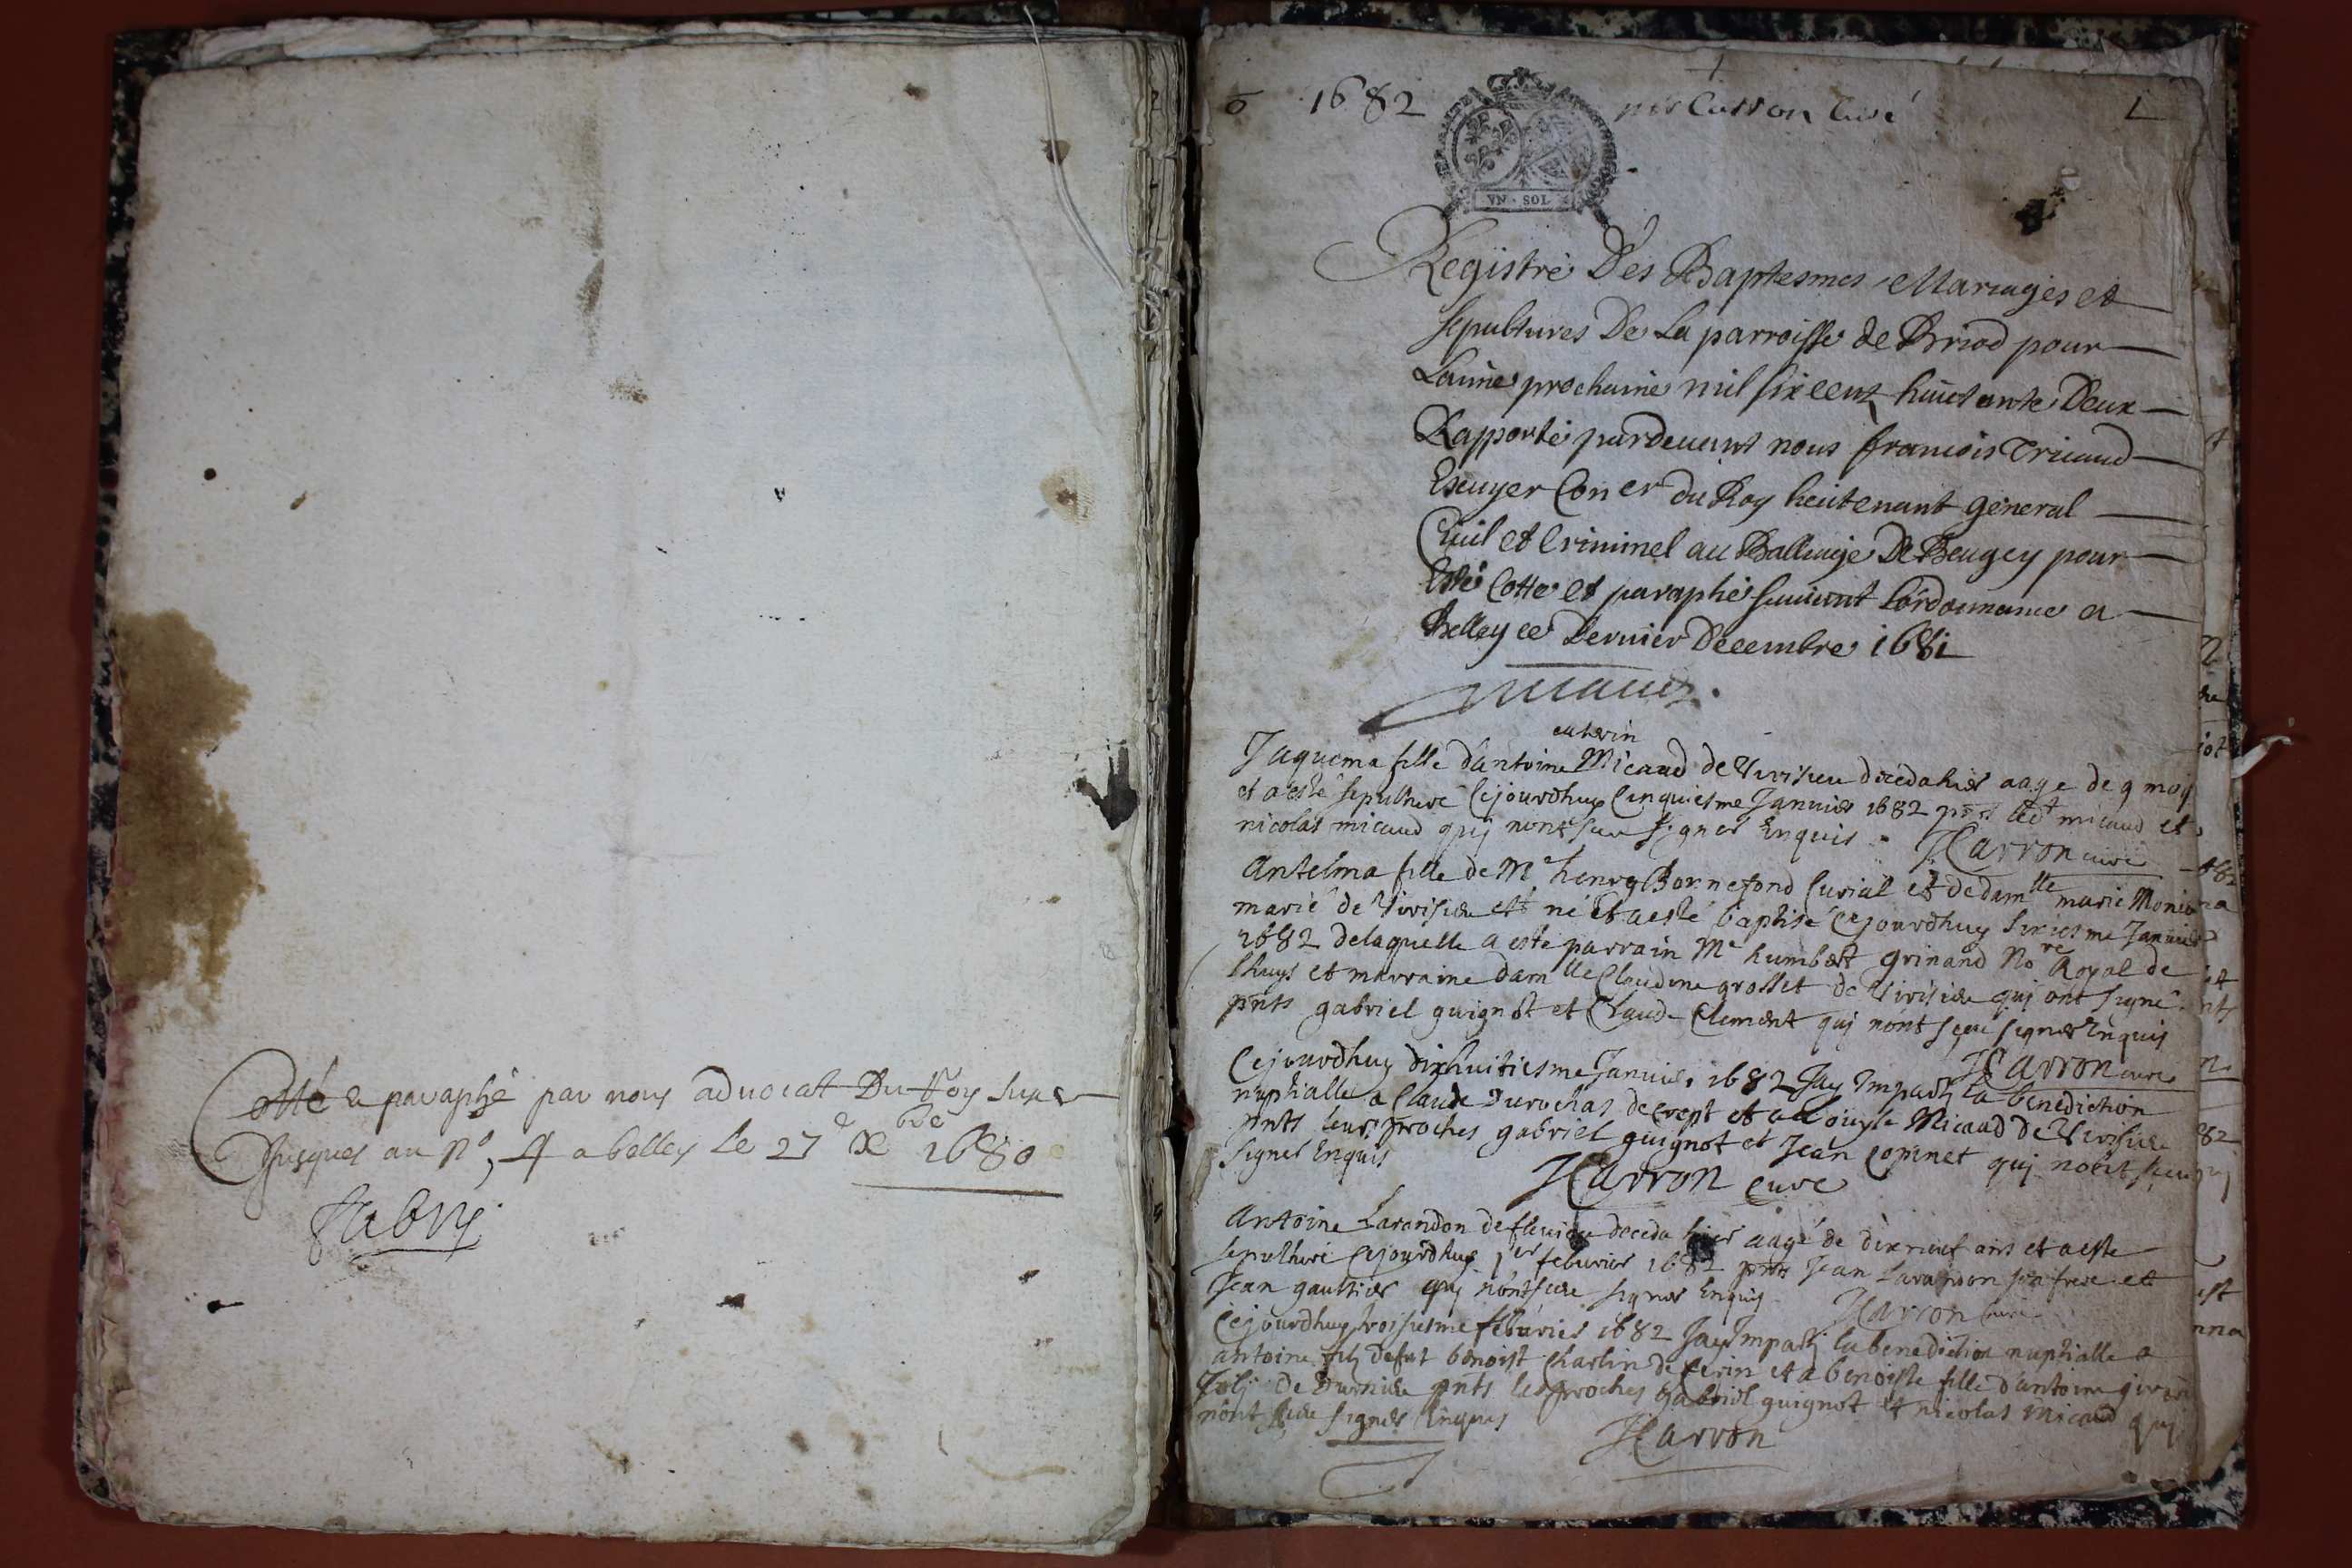 Cotté & paraphé par nous advocat Du Roy
Jusques au n°, 4 a belley le 27e Xbre 1680
fabry
1682 Carron Curé 1
VN · SOL
Registre Des Baptesmes Mariages et
sepultures De La parroisse de Briod pour
Lannée prochaine mil six cent huictante Deux
Rapporté pardevant nous francois Tricaud
Escuyer Coner du Roy lieutenant general
Civil et Criminel au Balliage De Beugey pour
Estre Cotté et paraphé suivant Lordonnance a
Belley ce Dernier Decembre 1681
Tricaud
catherin
Jaquema fille dantoine Micaud de Virisieu deceda hier aage de 9 moy
et a esté sepulturé Cejourdhuy Cinquiesme Janvier 1682 pnt ledt micaud et
nicolas micaud quj nont sceu signer Enquis. Carron curé
Antelma fille de Me henry Bonnefond Curial et de damlle marie Monier
marié de Virisieu est né et a esté baptisé Cejourdhuy sixiesme Janvier
1682 de laquelle a esté parrain Me humbert grinand Nore Royal de
Lhuys et marraine damlle Claudine grosset de Virisieu quj ont signé
pnts gabriel guignot et Claude Clement quj nont sceu signer Enquis
Carron curé
Cejourdhuy dixhuitiesme Janvier 1682 Jay Imparty la benediction
nuptialle a Claude Durochas de Crept et a Louyse Micaud de Virisieu
pnts leurs proches gabriel guignot et Jean Copinet quj nont sceu
signer Enquis Carron curé
Antoine Larandon de flevieu deceda hier aagé de dixneuf ans et a esté
sepulturé Cejourdhuy 1er febvrier 1682 pnts Jean Larandon son frere et
Jean gaultier quj nont sceu signer Enquis Carron curé
Cejourdhuy troisiesme febvrier 1682 Jay Imparty la benediction nuptialle a
antoine filz de fut benoist Charlin de Cerin et a benoiste fille dantoine
Jolj de pnts les proches gabriel guignot et nicolas Micaud quj
nont sceu signer Enquis Carron